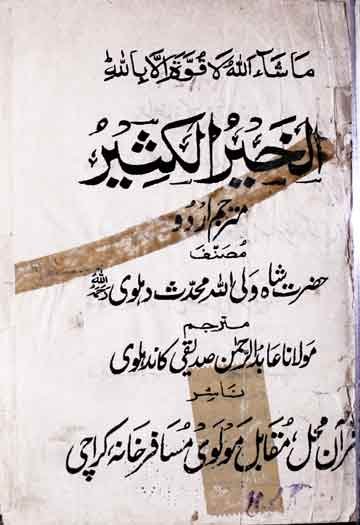 ما شآء اللّٰہ لا قوّۃ الّا باللّٰہ
الخیر الکثیر
مترجم اُردو
مصنف
حضرت شاہ ولی اللہ محدث دہلوی رحمۃ اللہ علیہ
مترجم
مولانا عابد الرحمٰن صدیقی کاندہلوی
ناشر
قرآن محل، مقابل مولوی مسافر خانہ کراچی